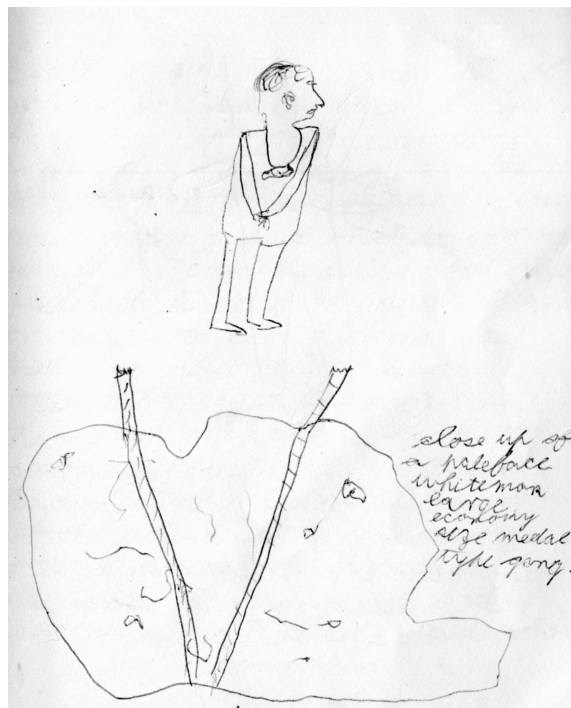 close up of
a paleface
whiteman
large
economy
size medal
type gong.